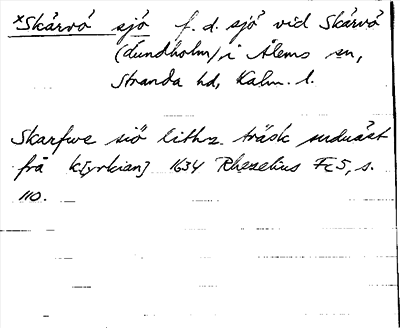 *Skårvå sjö f. d. sjö vid Skårvå
(Lundholm) i Ålems sn,
Stranda hd, Kalm. l.
Skarfwe siö lithz. träsk suduäst
frå k[yrkian] 1634 Rhezelius Fc5, s.
110.